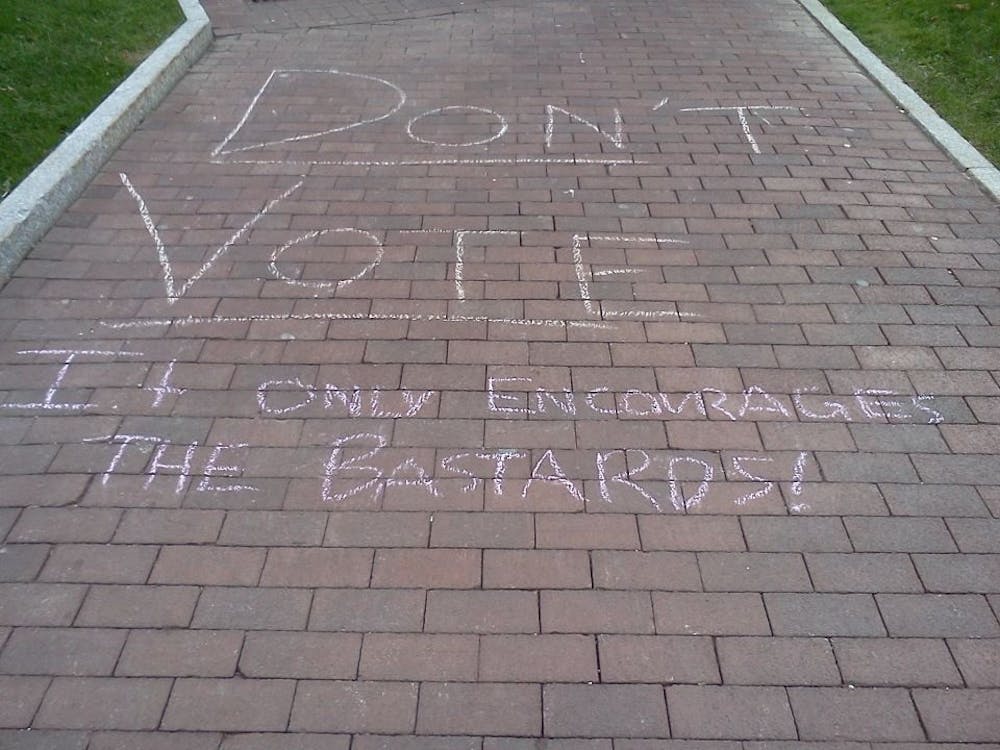 DON'T
VOTE
It ONLY ENCOURAGES
THE BASTARDS!